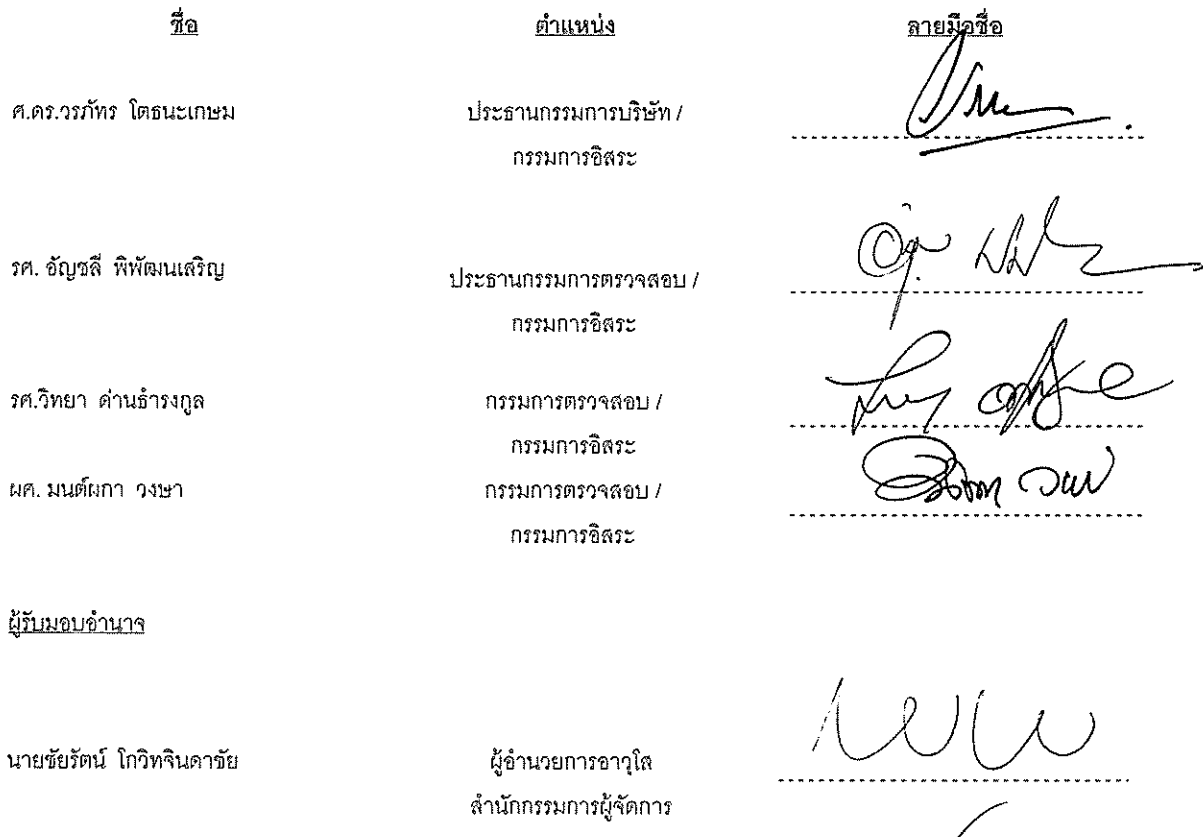 ชื่อ ตำแหน่ง ลายมือชื่อ
ศ.ดร.วรภัทร โตธนะเกษม ประธานกรรมการบริษัท /
กรรมการอิสระ
รศ. อัญชลี พิพัฒนเสริญ ประธานกรรมการตรวจสอบ /
กรรมการอิสระ
รศ.วิทยา ด่านธำรงกูล กรรมการตรวจสอบ /
กรรมการอิสระ
ผศ. มนต์ผกา วงษา กรรมการตรวจสอบ /
กรรมการอิสระ
ผู้รับมอบอำนาจ
นายชัยรัตน์ โกวิทจินดาชัย ผู้อำนวยการอาวุโส
สำนักกรรมการผู้จัดการ